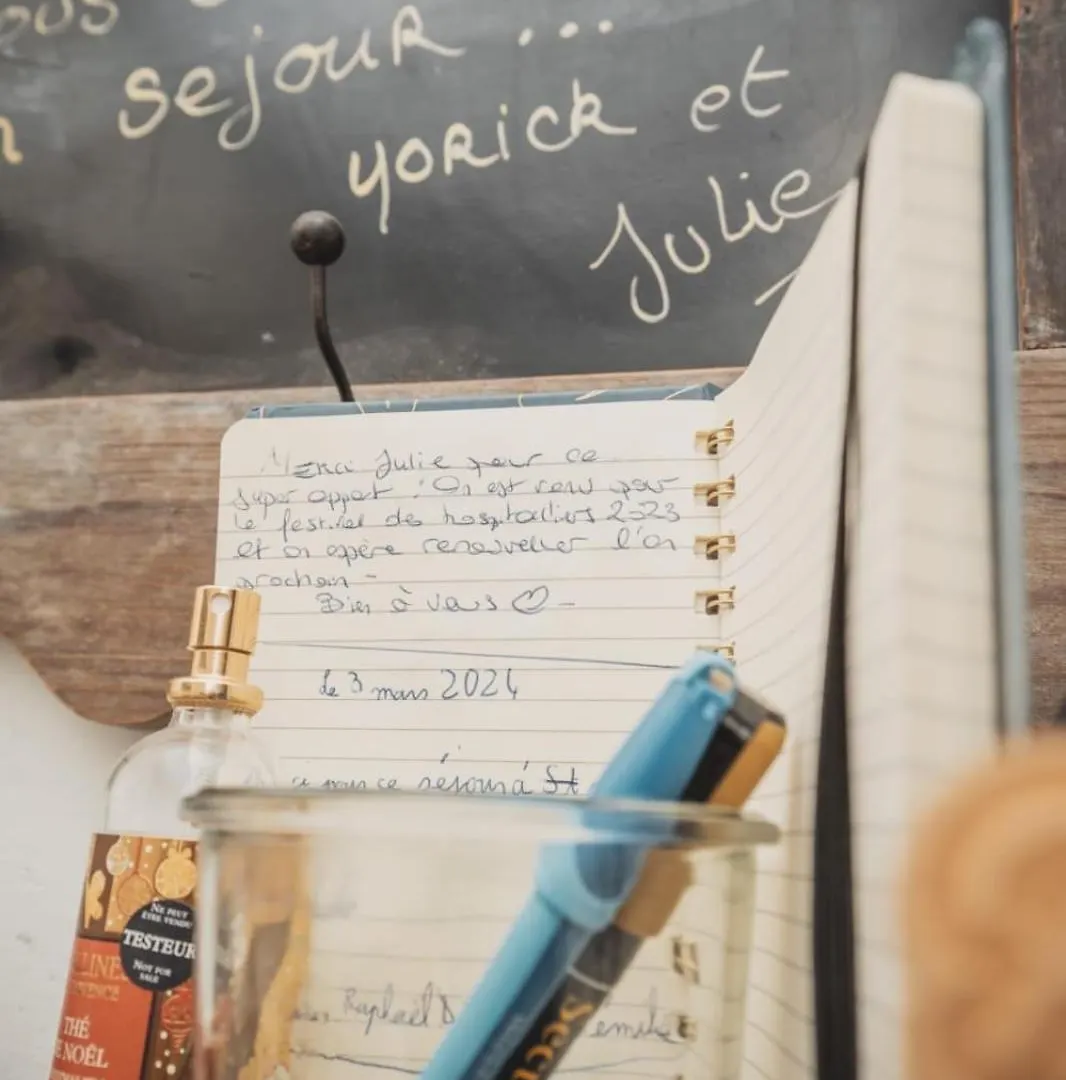 sejour ...
yorick et
Julie
Merci Julie pour ce
super appart. On est venu pour
le festival des hospitaliers 2023
et on espère renouveller l'an
prochain -
Bien à vous ♡ -
Le 3 mars 2024
ce séjour à St
Raphaël D
NE PEUT
ÊTRE VENDU
TESTEUR
NOT FOR
SALE
THÉ
NOËL